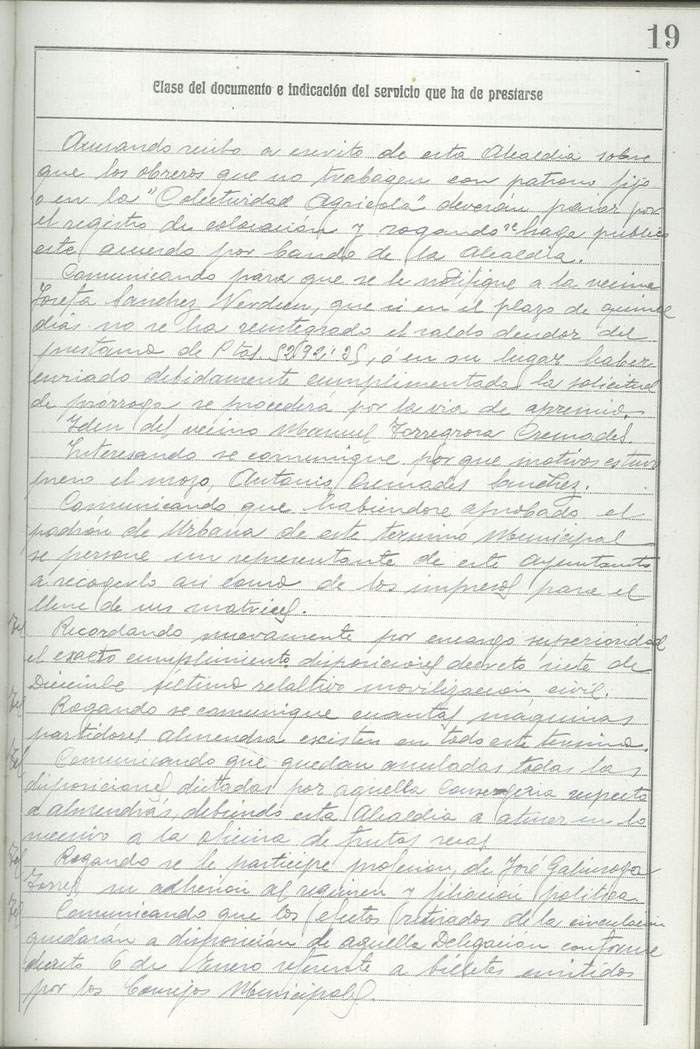 19
Clase del documento e indicación del servicio que ha de prestarse
Acusando recibo a escrito de esta Alcaldia sobre
que los obreros que no trabagen con patrono fijo
o en la "Colectividad Agricola" deverán pasar por
el registro de colocación y rogando se haga publico
este acuerdo por bando de la Alcaldia.
Comunicando para que se le notifique a la vecina
Josefa Sanchez Verdieu, que si en el plazo de quince
dias no se ha reintegrado el saldo deudor del
prestamo de Ptas. 5292'25, ó en su lugar haber
enviado debidamente cumplimentada la solicitud
de prórroga se procederá por la via de apremio.
Iden del vecino Manuel Torregrosa Cremades.
Interesando se comunique por que motivos estuvo
preso el mozo, Antonio Cremades Sanchez.
Comunicando que habiendose aprobado el
padrón de Urbana de este termino Municipal
se persone un representante de este Ayuntamto
a recogerlo asi como de los impresos para el
llene de sus matrices.
Tel Recordando nuevamente por encargo superioridad
el exacto cumplimiento disposiciones decreto siete de
Diciembe último relativo movilización civil.
Tel Rogando se comunique cuantas máquinas
partidores almendra existen en todo este termino.
Tel Comunicando que quedan anuladas todas las
disposiciones dictadas por aquella Consegeria respecto
a almendras, debiendo esta Alcaldia a atener en lo
sucesivo a la oficina de frutas secas
Tel Rogando se le participe profesion, de José Galinsoga
Torres su adhesion al regimen y filiación politica.
Tel Comunicando que los efectos retirados de la circulacion
quedarán a disposición de aquella Delegacion conforme
decreto 6 de Enero referente a billetes emitidos
por los Consejos Municipales.